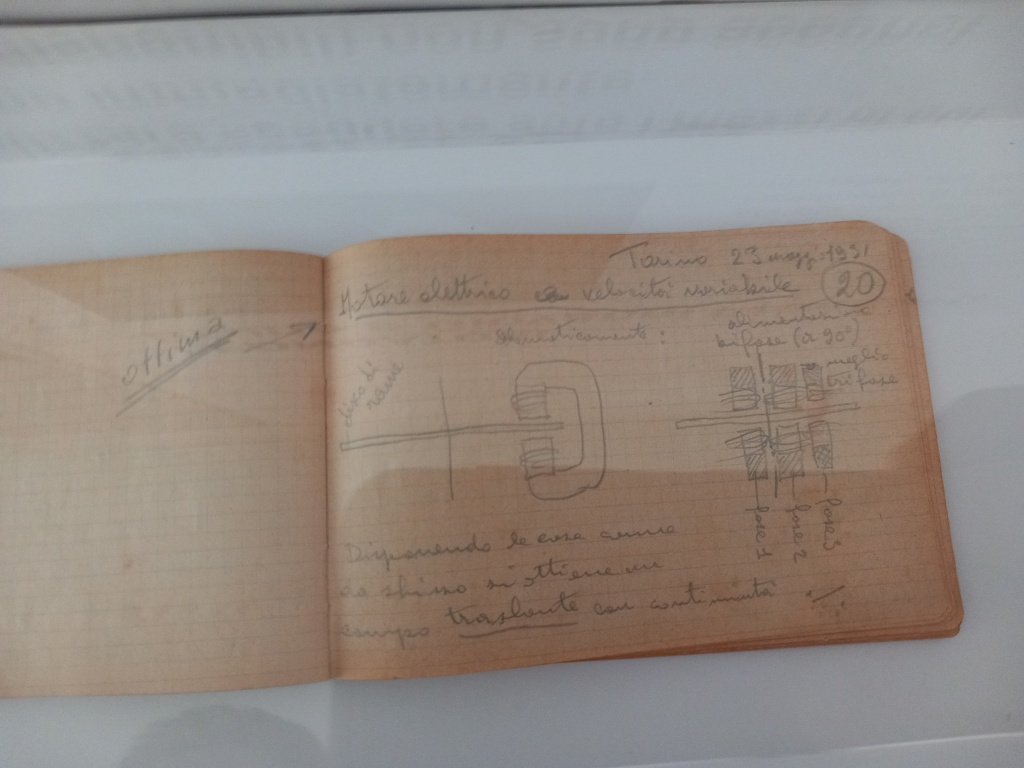 ottima
Torino 23 maggio 1931
20
Motore elettrico a velocità variabile
alimentazione
bifase (a 90°)
meglio
trifase
disco di
rame
fase 1
fase 2
fase 3
Disponendo le cose come
da schizzo si ottiene un
campo traslante con continuità